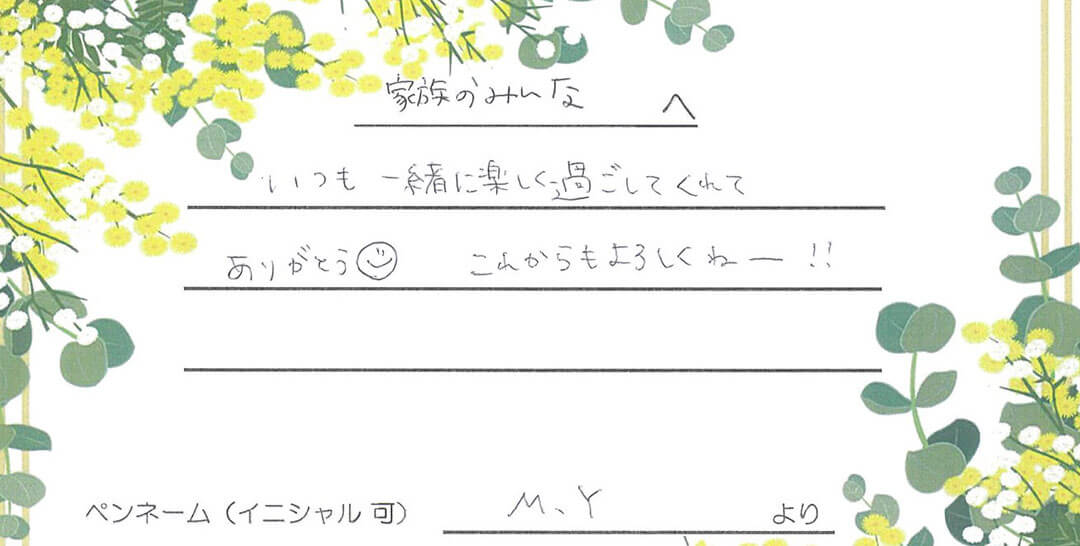 家族のみんな へ
いつも 一緒に楽しく過ごしてくれて
ありがとう☺ これからもよろしくねー !!
ペンネーム（イニシャル 可） M、Y より